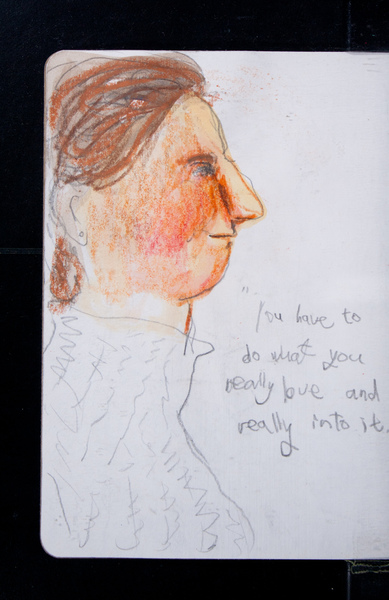 "You have to
do what you
really love and
really into it.